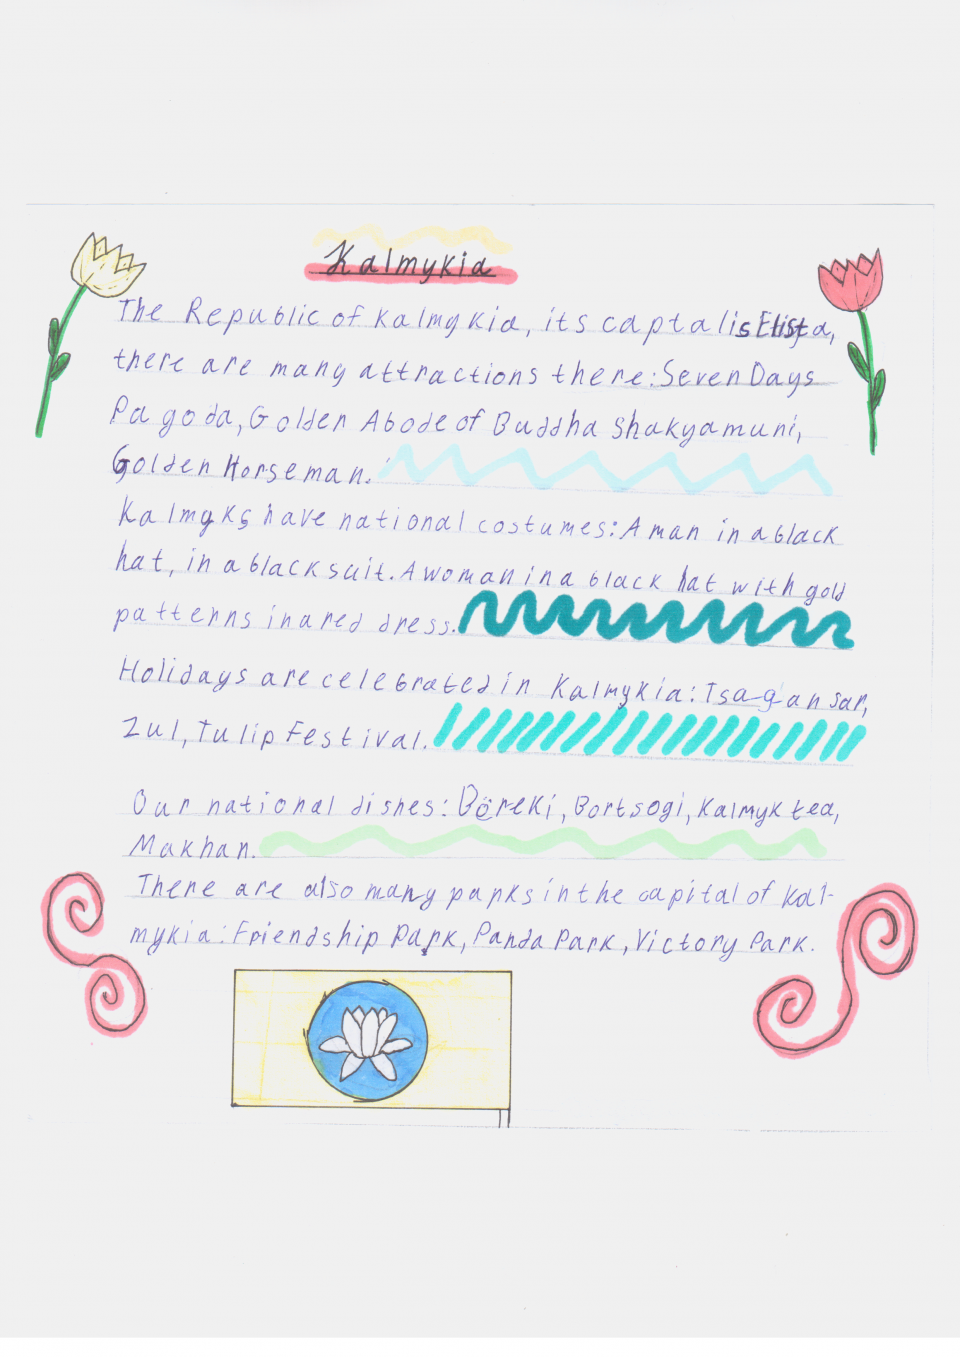 Kalmykia
The Republic of Kalmykia, its captal is Elista,
there are many attractions there: Seven Days
Pagoda, Golden Abode of Buddha Shakyamuni,
Golden Horseman.
Kalmyks have national costumes: A man in a black
hat, in a black suit. A woman in a black hat with gold
patterns in a red dress.
Holidays are celebrated in Kalmykia: Tsagan Sar,
Zul, Tulip Festival.
Our national dishes: Böreki, Bortsogi, Kalmyk tea,
Makhan.
There are also many parks in the capital of Kal-
mykia: Friendship Park, Panda Park, Victory Park.